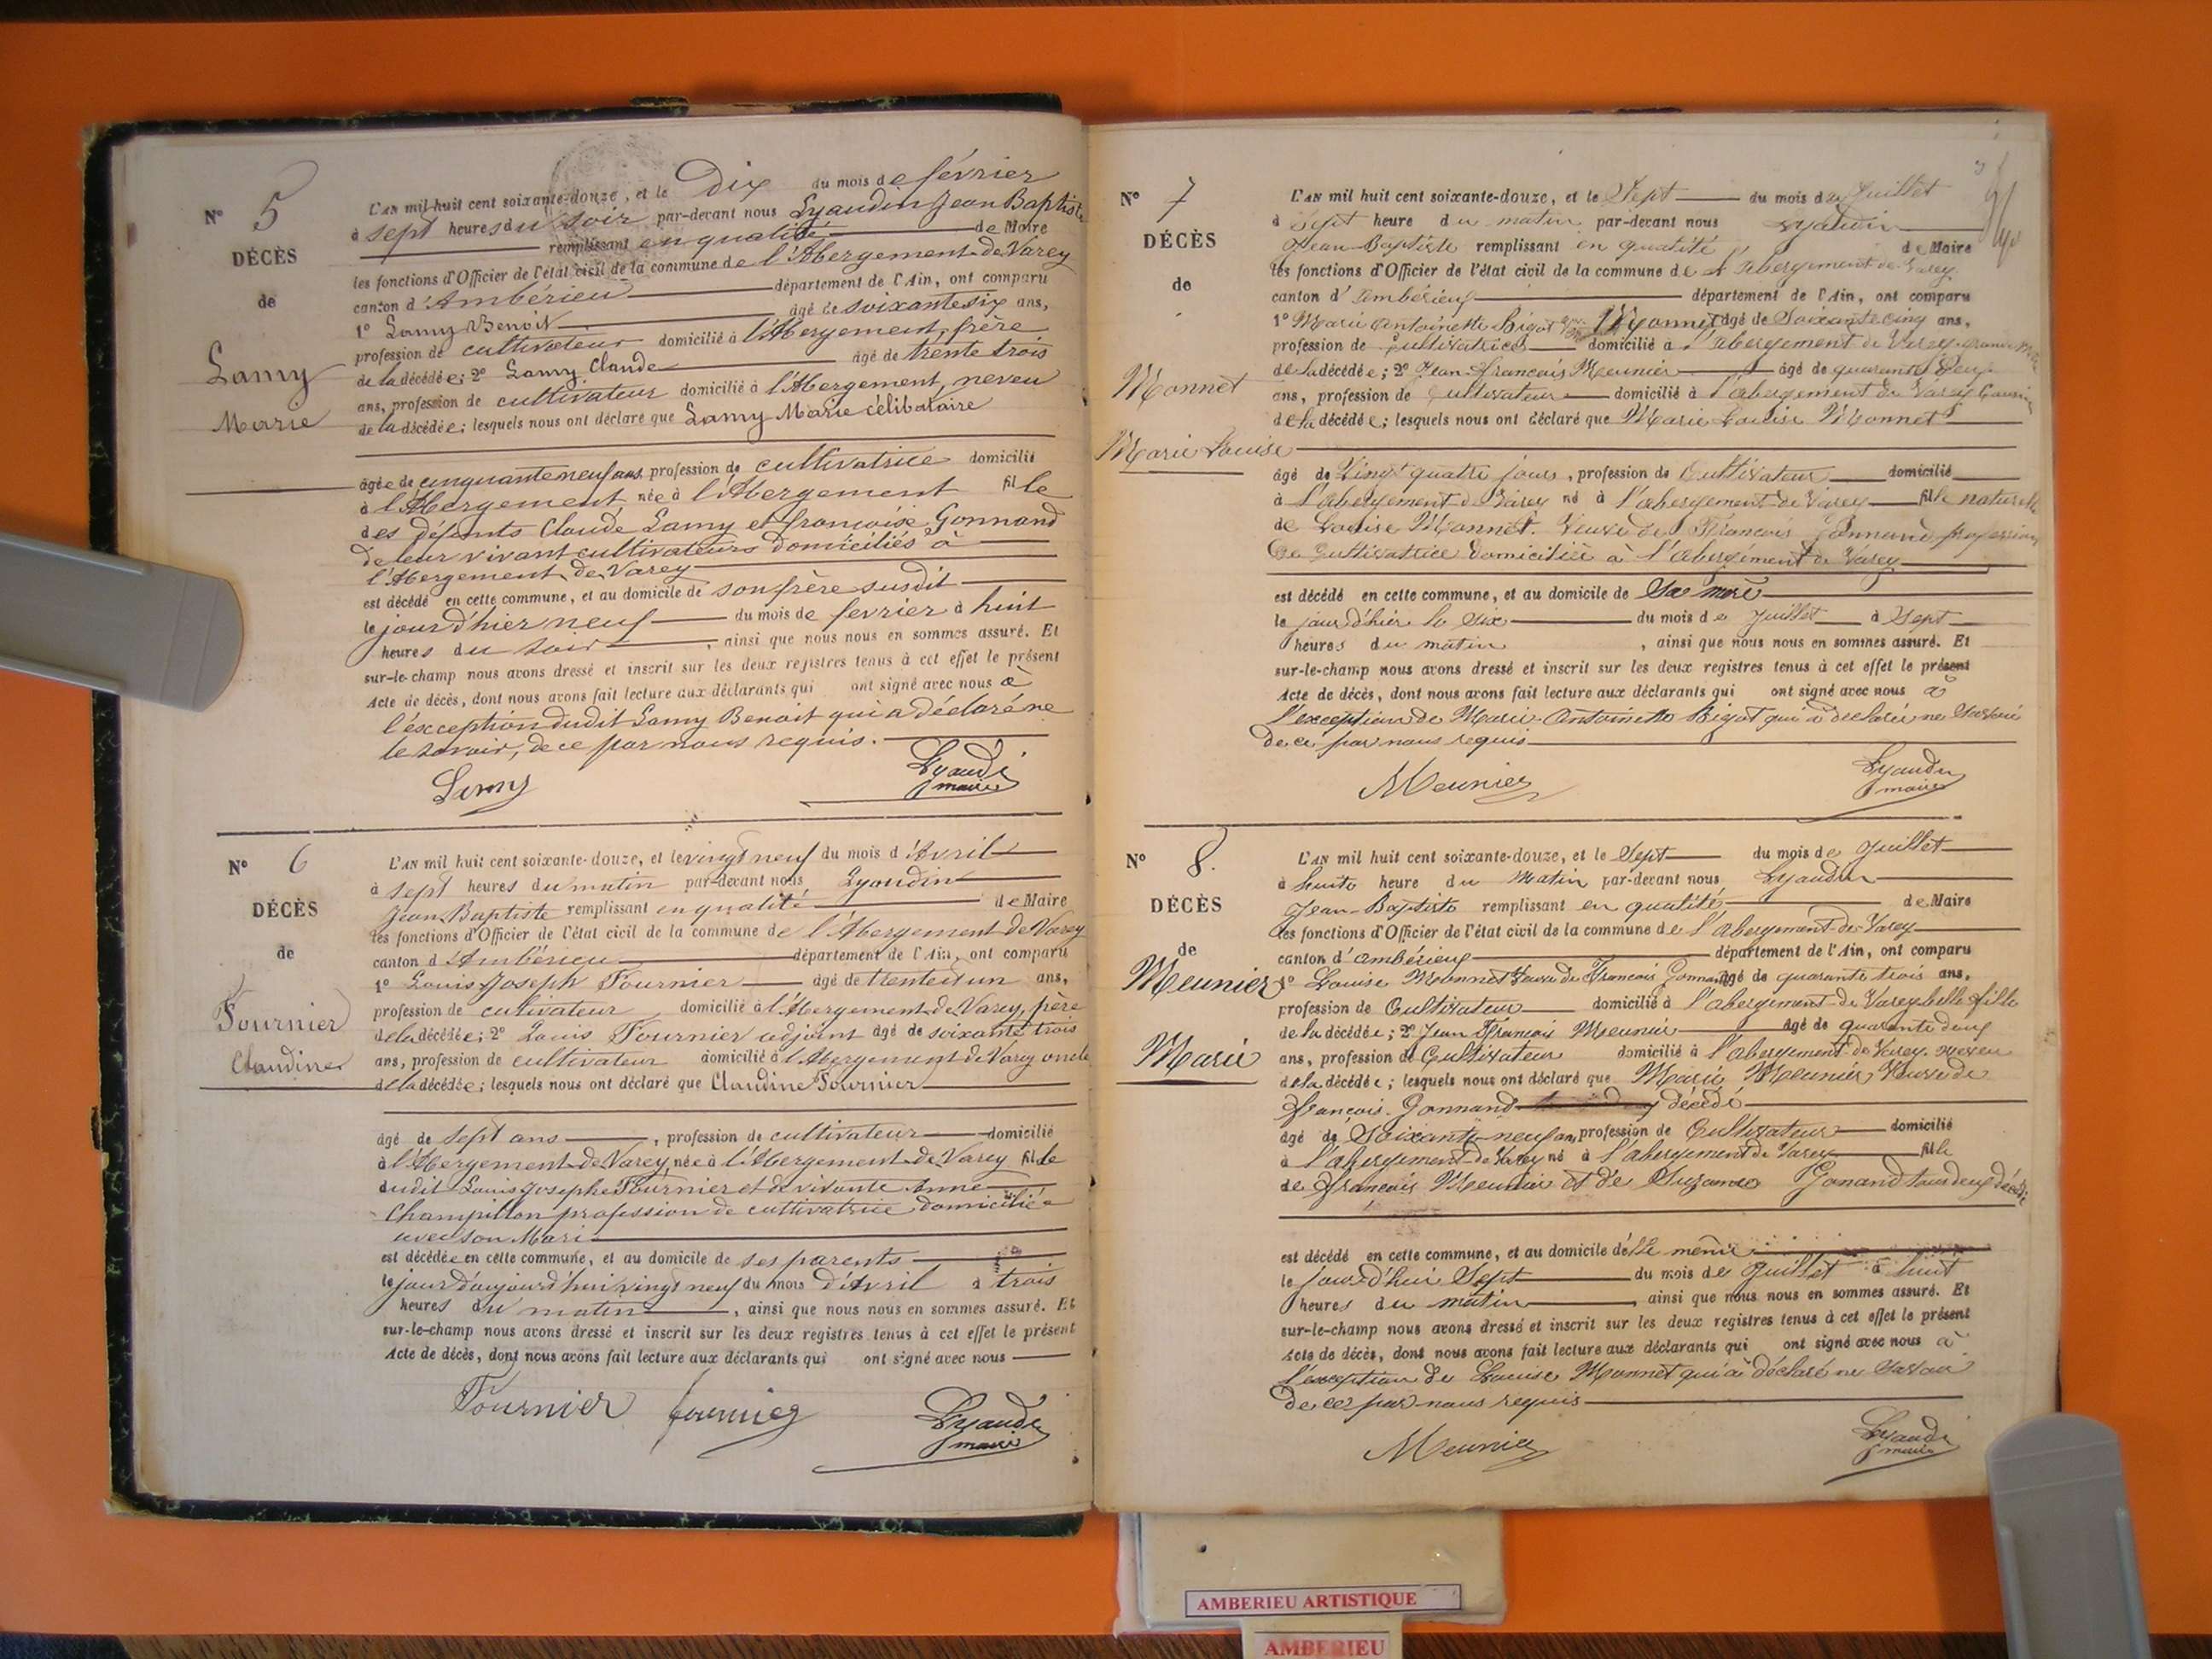 N° 5
DÉCÈS
de
Lamy
Marie
L'AN mil huit cent soixante-douze, et le Dix du mois de février
à sept heures du soir par-devant nous Lyaudin Jean Baptiste
remplissant en qualité de Maire
les fonctions d'Officier de l'état civil de la commune de l'Abergement de Varey
canton d'Ambérieu département de l'Ain, ont comparu
1° Lamy Benoit âgé de soixante six ans,
profession de cultivateur domicilié à l'Abergement, frère
de la décédée; 2° Lamy Claude âgé de trente trois
ans, profession de cultivateur domicilié à l'Abergement, neveu
de la décédée; lesquels nous ont déclaré que Lamy Marie célibataire
âgée de cinquante neuf ans profession de cultivatrice domicilié
à l'Abergement née à l'Abergement fille
des défunts Claude Lamy et françoise Gonnand
de leur vivant cultivateurs domiciliés à
l'Abergement de Varey
est décédé en cette commune, et au domicile de son frère susdit
le jour d'hier neuf du mois de fevrier à huit
heures du soir, ainsi que nous nous en sommes assuré. Et
sur-le-champ nous avons dressé et inscrit sur les deux registres tenus à cet effet le présent
Acte de décès, dont nous avons fait lecture aux déclarants qui ont signé avec nous à
l'exception dudit Lamy Benoit qui a déclaré ne
le savoir, de ce par nous requis.
Lamy Lyaudi
maire
N° 6
DÉCÈS
de
Fournier
Claudine
L'AN mil huit cent soixante-douze, et le vingt neuf du mois d'Avril
à sept heures du matin par-devant nous Lyaudin
Jean Baptiste remplissant en qualité de Maire
les fonctions d'Officier de l'état civil de la commune de l'Abergement de Varey
canton d'Ambérieu département de l'Ain, ont comparu
1° Louis Joseph Fournier âgé de trente et un ans,
profession de cultivateur domicilié à l'Abergement de Varey, père
de la décédée; 2° Louis Fournier adjoint âgé de soixante trois
ans, profession de cultivateur domicilié à l'Abergement de Varey oncle
de la décédée; lesquels nous ont déclaré que Claudine Fournier
âgé de sept ans, profession de cultivateur domicilié
à l'Abergement de Varey, née à l'Abergement de Varey fille
dudit Louis Josephe Fournier et de vivante Anne
Champillon profession de cultivatrice domiciliée
avec son Mari
est décédée en cette commune, et au domicile de ses parents
le jour d'aujourd'hui vingt neuf du mois d'Avril à trois
heures du matin, ainsi que nous nous en sommes assuré. Et
sur-le-champ nous avons dressé et inscrit sur les deux registres tenus à cet effet le présent
Acte de décès, dont nous avons fait lecture aux déclarants qui ont signé avec nous
Fournier fournier Lyaudi
maire
N° 7
DÉCÈS
de
Monnet
Marie Louise
L'AN mil huit cent soixante-douze, et le Sept du mois de Juillet
à Sept heure du matin par-devant nous Lyaudin
Jean-Baptiste remplissant en qualité de Maire
les fonctions d'Officier de l'état civil de la commune de l'abergement de Varey
canton d'ambérieux département de l'Ain, ont comparu
1° Marie Antoinette Bigot Monnet âgé de Soixante cinq ans,
profession de Cultivatrice domicilié à l'abergement de Varey grand
de la décédée; 2° Jean-francois Meunier âgé de quarante Deux
ans, profession de Cultivateur domicilié à l'abergement de Varey Cousin
de la décédée; lesquels nous ont déclaré que Marie Louise Monnet
âgé de Vingt quatre jours, profession de Cultivateur domicilié
à l'abergement de Varey né à l'abergement de Varey fille naturelle
de Louise Monnet. Veuve de François Gonnand profession
de Cultivatrice domiciliée à l'abergement de Varey
est décédé en cette commune, et au domicile de Sa mère
le jour d'hier le Six du mois de Juillet à Sept
heures du matin, ainsi que nous nous en sommes assuré. Et
sur-le-champ nous avons dressé et inscrit sur les deux registres tenus à cet effet le présent
Acte de décès, dont nous avons fait lecture aux déclarants qui ont signé avec nous à
l'exception de Marie-Antoinette Bigot qui à déclaré ne
de ce par nous requis
Meunier Lyaudi
maire
N° 8.
DÉCÈS
de
Meunier
Marie
L'AN mil huit cent soixante-douze, et le Sept du mois de Juillet
à huit heure du Matin par-devant nous Lyaudin
Jean-Baptiste remplissant en qualité de Maire
les fonctions d'Officier de l'état civil de la commune de l'abergement de Varey
canton d'ambérieux département de l'Ain, ont comparu
1° Louise Monnet Veuve de François Gonnand âgé de quarante trois ans,
profession de Cultivateur domicilié à l'abergement de Varey belle fille
de la décédée; 2° Jean François Meunier âgé de quarante deux
ans, profession de Cultivateur domicilié à l'abergement de Varey. neveu
de la décédée; lesquels nous ont déclaré que Marie Meunier, Veuve de
françois. Gonnand décédé
âgé de Soixante neuf ans profession de Cultivateur domicilié
à l'abergement de Varey né à l'abergement de Varey fille
de françois Meunier et de Suzanne Gonand tous deux décédé
est décédé en cette commune, et au domicile d'elle même
le jour d'hui Sept du mois de Juillet à huit
heures du matin, ainsi que nous nous en sommes assuré. Et
sur-le-champ nous avons dressé et inscrit sur les deux registres tenus à cet effet le présent
Acte de décès, dont nous avons fait lecture aux déclarants qui ont signé avec nous à
l'exception de Louise Monnet qui à déclaré ne
de ce par nous requis
Meunier Lyaudi
maire
AMBERIEU ARTISTIQUE
AMBERIEU